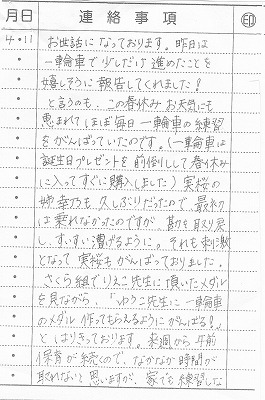 月日 連絡事項 印
4・11 お世話になっております。昨日は
一輪車で少しだけ進めたことを
嬉しそうに報告してくれました!
と言うのも、この春休みお天気にも
恵まれてほぼ毎日一輪車の練習
をがんばっていたのです。(一輪車は
誕生日プレゼントを前倒しして春休み
に入ってすぐに購入しました)実桜の
姉 も久しぶりだったので、最初
は乗れなかったのですが、勘を取り戻
し、すいすい漕げるように。それも刺激
となって実桜もがんばっておりました。
さくら組でりえこ先生に頂いたメダル
を見ながら、「ゆうこ先生に一輪車
のメダル作ってもらえるようにがんばる!」
とはりきっております。来週から午前
保育が続くので、なかなか時間が
取れないと思いますが、家でも練習しな